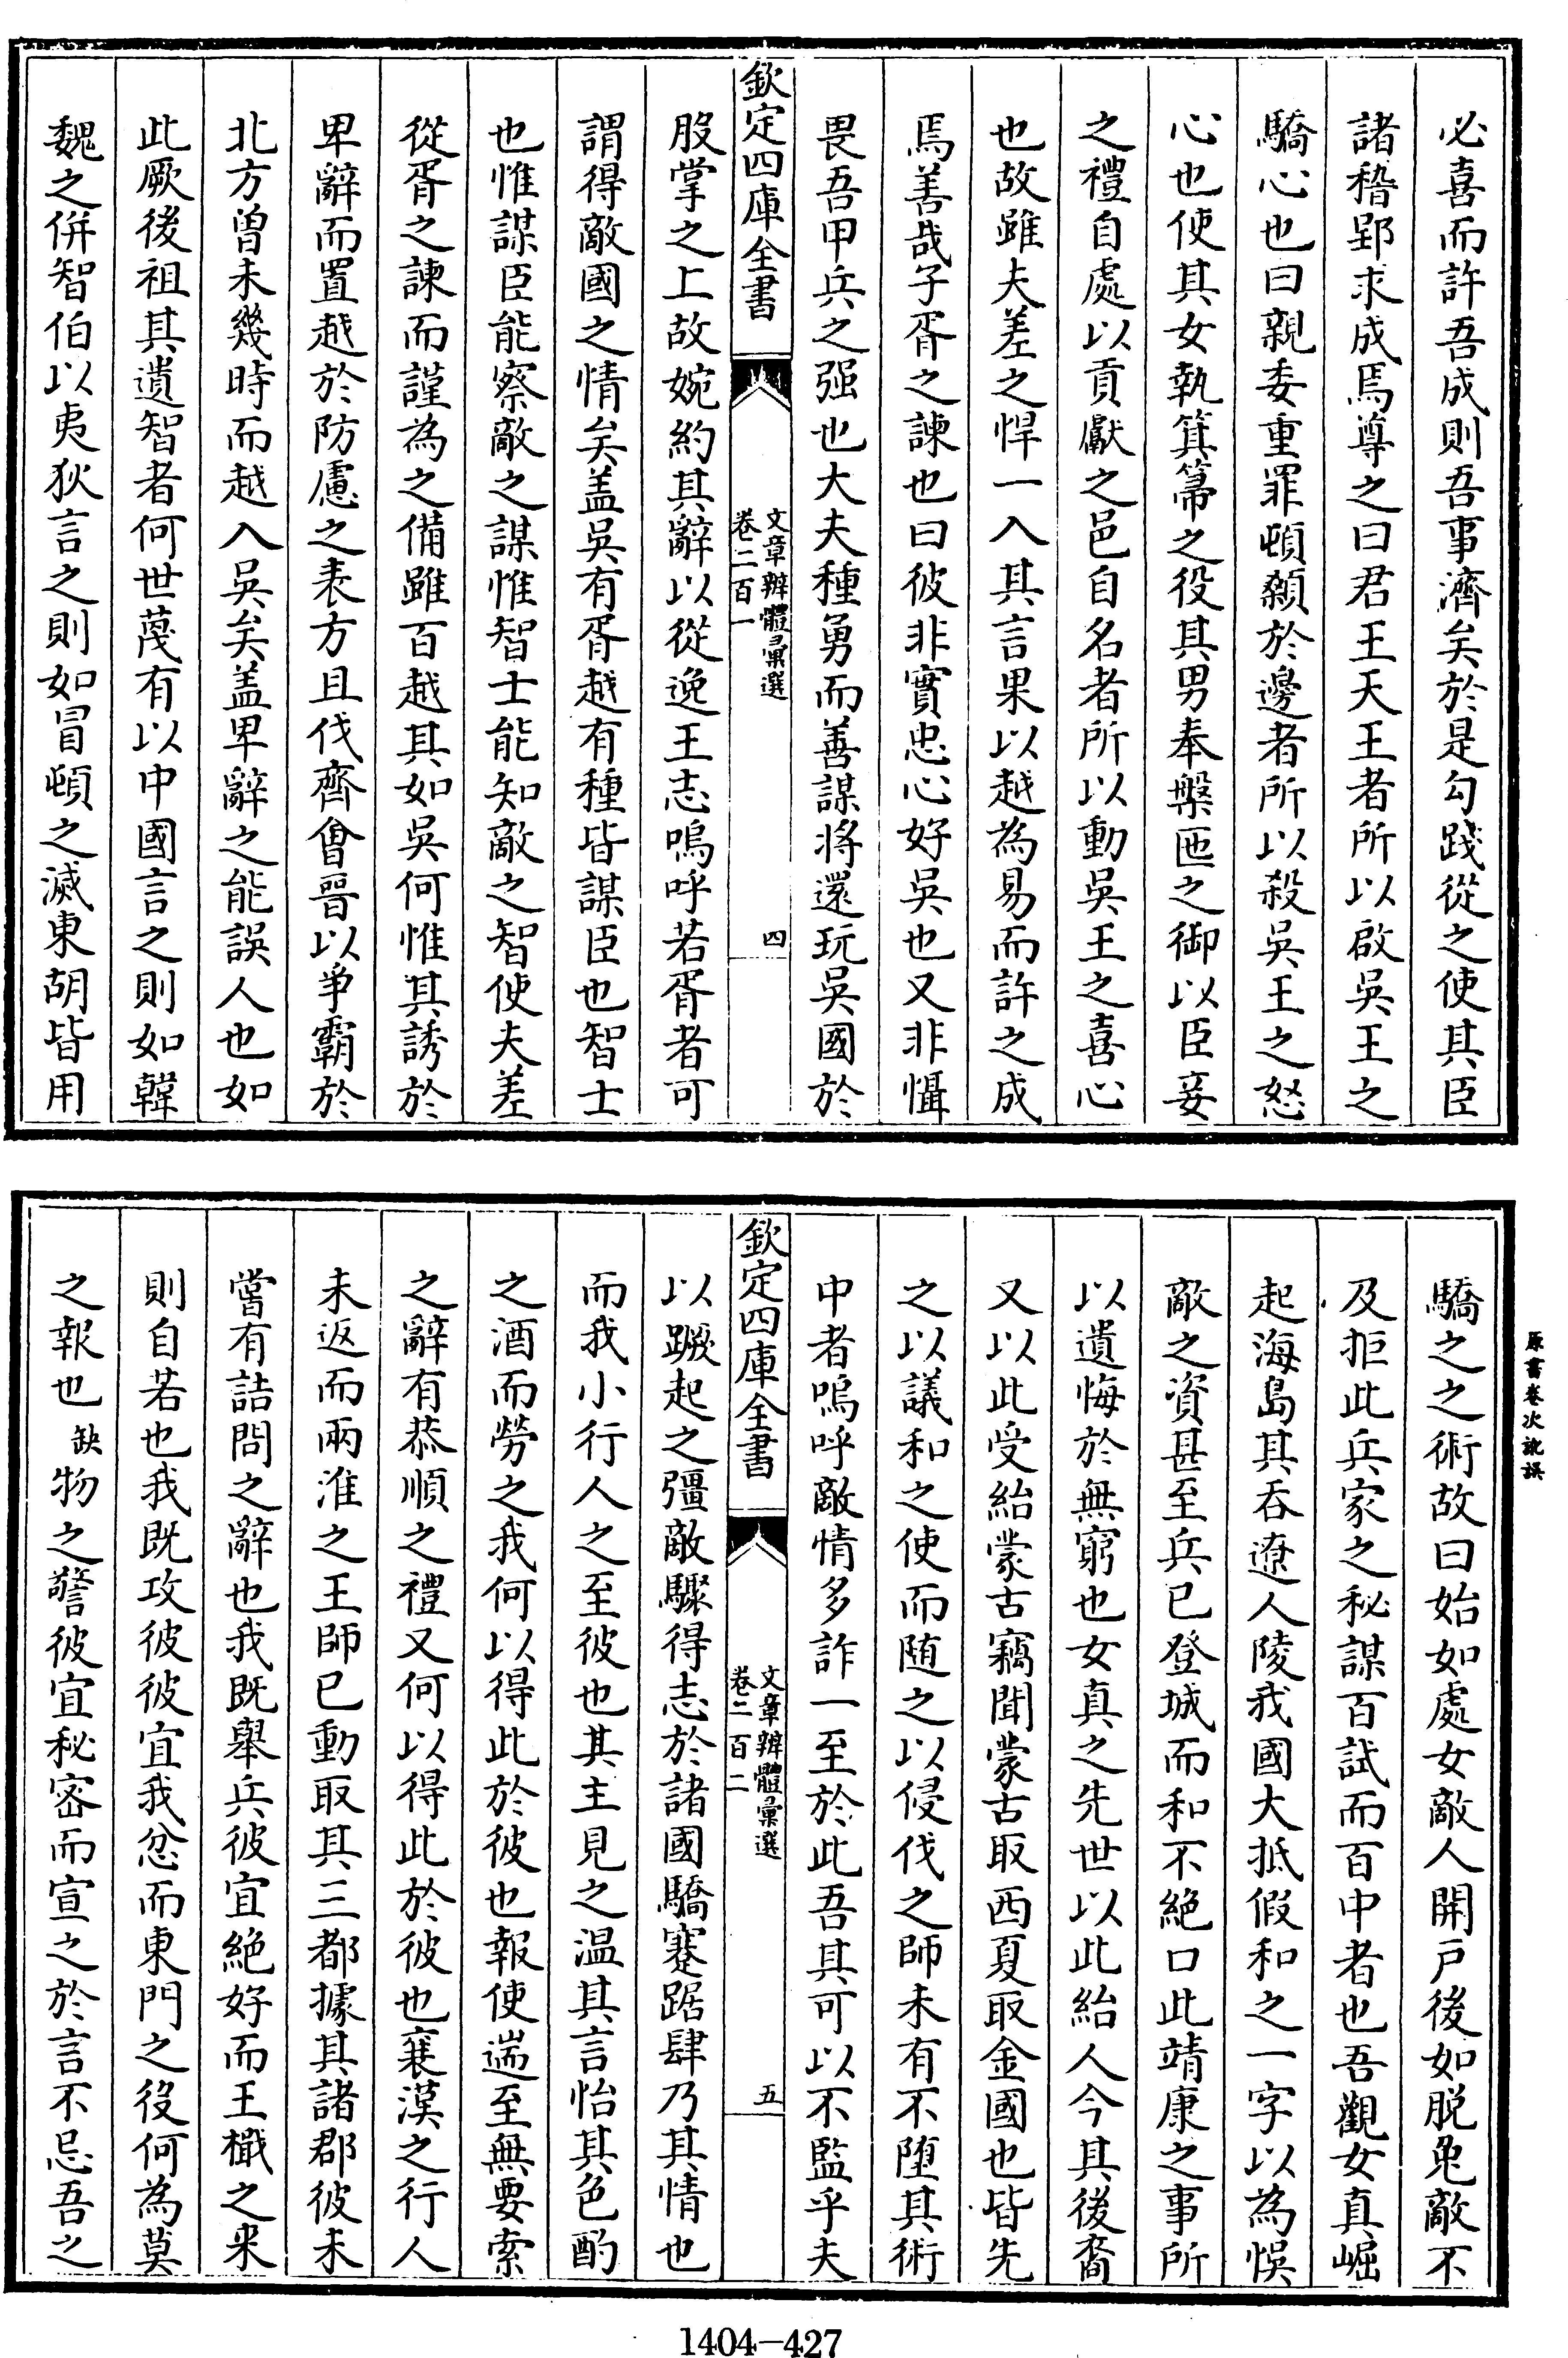 必喜而許吾成則吾事濟矣於是勾踐從之使其臣
諸稽郢求成焉尊之曰君王天王者所以啟吳王之
驕心也曰親委重罪頓顙於邊者所以殺吳王之怒
心也使其女執箕箒之役其男奉槃匜之御以臣妾
之禮自處以貢獻之邑自名者所以動吳王之喜心
也故雖夫差之悍一入其言果以越為易而許之成
焉善哉子胥之諫也曰彼非實忠心好吳也又非懾
畏吾甲兵之强也大夫種勇而善謀將還玩吳國於
欽定四庫全書
文章辨體彙選
卷二百一
四
股掌之上故婉約其辭以從逸王志嗚呼若胥者可
謂得敵國之情矣盖吳有胥越有種皆謀臣也智士
也惟謀臣能察敵之謀惟智士能知敵之智使夫差
從胥之諫而謹為之備雖百越其如吳何惟其誘於
卑辭而置越於防慮之表方且伐齊會晉以爭霸於
北方曽未幾時而越入吳矣盖卑辭之能誤人也如
此厥後祖其遺智者何世蔑有以中國言之則如韓
魏之併智伯以夷狄言之則如冒頓之滅東胡皆用
原書卷次訛誤
驕之之術故曰始如處女敵人開戶後如脱兎敵不
及拒此兵家之秘謀百試而百中者也吾觀女真崛
起海島其吞遼人陵我國大抵假和之一字以為悞
敵之資甚至兵已登城而和不絶口此靖康之事所
以遺悔於無窮也女真之先世以此紿人今其後裔
又以此受紿蒙古竊聞蒙古取西夏取金國也皆先
之以議和之使而随之以侵伐之師未有不墮其術
中者嗚呼敵情多詐一至於此吾其可以不監乎夫
欽定四庫全書
文章辨體彙選
卷二百二
五
以蹶起之彊敵驟得志於諸國驕蹇踞肆乃其情也
而我小行人之至彼也其主見之温其言怡其色酌
之酒而勞之我何以得此於彼也報使遄至無要索
之辭有恭順之禮又何以得此於彼也襄漢之行人
未返而兩淮之王師已動取其三都據其諸郡彼未
嘗有詰問之辭也我既舉兵彼宜絶好而王檝之来
則自若也我既攻彼彼宜我忿而東門之役何為莫
之報也缺物之警彼宜秘密而宣之於言不忌吾之
1404-427